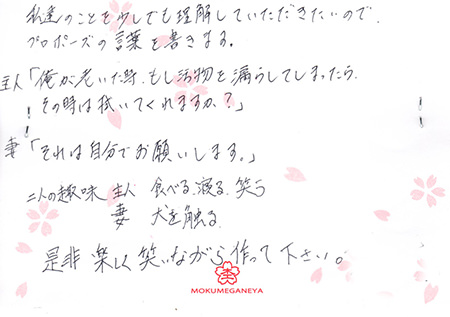 私達のことを少しでも理解していただきたいので、
プロポーズの言葉を書きます。
主人「俺が老いた時、もし汚物を漏らしてしまったら、
その時は拭いてくれますか?」
妻「それは自分でお願いします。」
二人の趣味 主人 食べる、寝る、笑う
妻 犬を触る
是非 楽しく 笑いながら 作って 下さい。
MOKUMEGANEYA